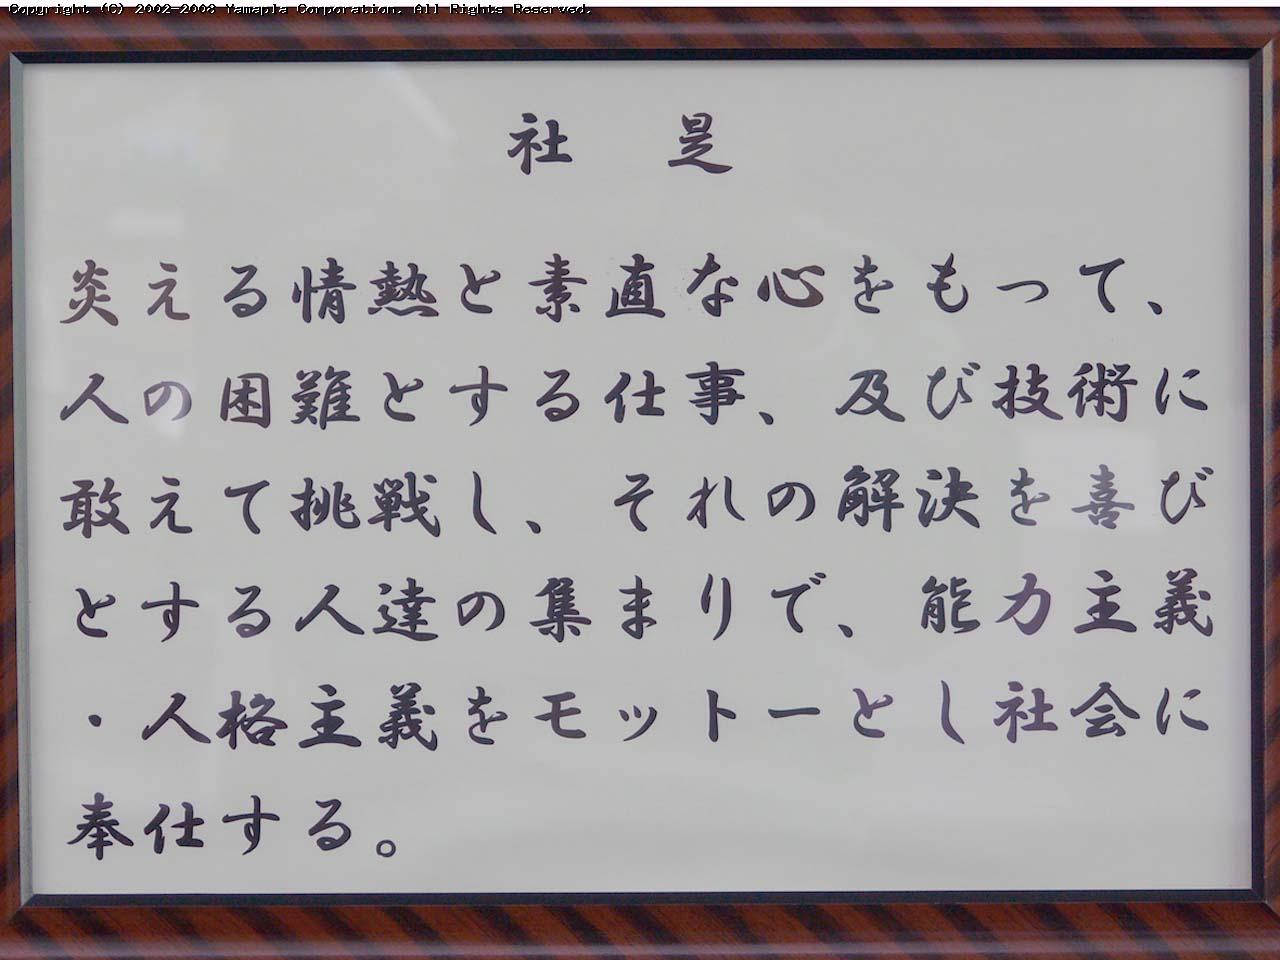 Copyright (C) 2002-2003 Yamapla Corporation. All Rights Reserved.
社 是
炎える情熱と素直な心をもって、
人の困難とする仕事、及び技術に
敢えて挑戦し、それの解決を喜び
とする人達の集まりで、能力主義
・人格主義をモットーとし社会に
奉仕する。